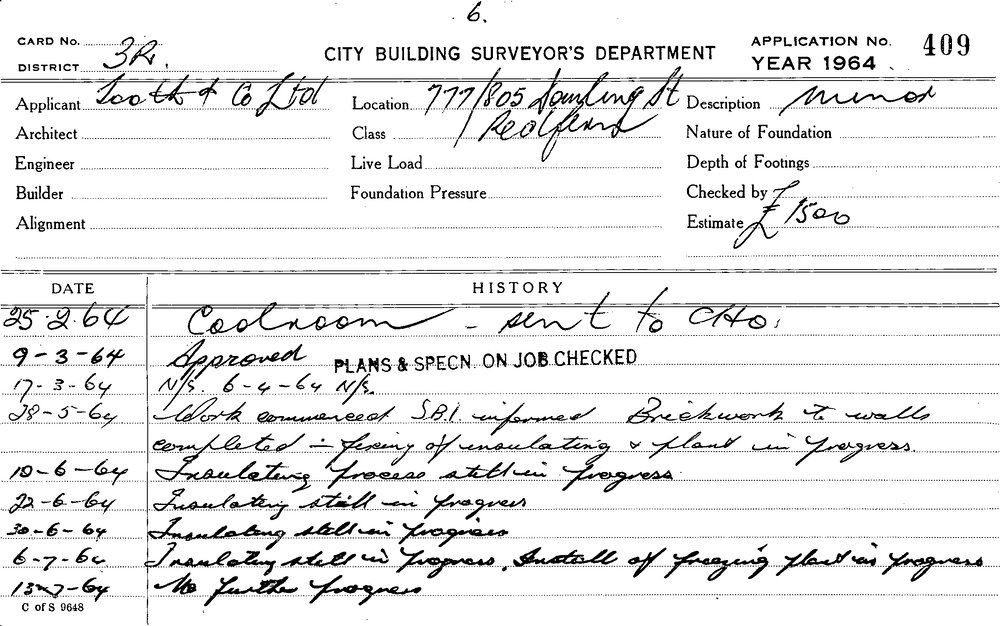 6.
CARD No.
DISTRICT 3R.
CITY BUILDING SURVEYOR'S DEPARTMENT
APPLICATION No. 409
YEAR 1964
Applicant Tooth & Co Ltd
Location 777/805 Dowling St
Redfern
Description Minor
Architect
Class
Nature of Foundation
Engineer
Live Load
Depth of Footings
Builder
Foundation Pressure
Checked by
Alignment
Estimate £1500
DATE HISTORY
25.2.64 Coolroom - sent to CHO.
9-3-64 Approved PLANS & SPECN. ON JOB CHECKED
17-3-64 N/S. 6-4-64 N/S.
28-5-64 Work commenced S.B.I. informed Brickwork to walls
completed - fixing of insulating & plant in progress.
10-6-64 Insulating process still in progress
22-6-64 Insulating still in progress
30-6-64 Insulating still in progress
6-7-64 Insulating still in progress. Install of freezing plant in progress
13-7-64 No further progress
C of S 9648